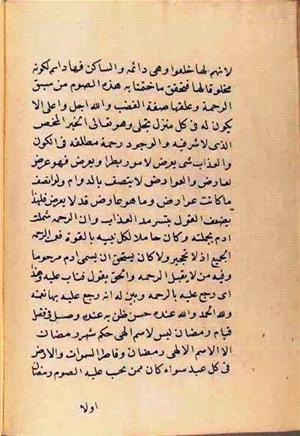 لانهم لها خلقوا وهى دائمة والساكن فيها دايم لكونه
مخلوقا لها فتحقق ما ختمنا به هذه الصوم من سبق
الرحمة وغلقها صفة الغضب والله اجل واعلى ان لا
يكون له فى كل منزل تجلى وهو تعالى الخير المحض
الذى لا شر فيه والوجود رحمة مطلقة فى الكون
والعذاب شى يعرض لامور تطرا وتعرض فهو عرض
لعارض والعوارض لا تتصف بالدوام ولو اتصف
ما كانت عوارض وما هو عارض قد لا يعرض فلهذا
يضعف القول بتسرمد العذاب وان الرحمة شملت
ادم بجملته وكان حاملا لكل بنيه بالقوة فعم الرحم
الجميع اذ لا تحجير ولا كان يستحق ان يسمى ادم مرحوما
وفيه من لا يقبل الرحمة والحق يقول فتاب عليه وهدى
اى رجع عليه بالرحمة وبين له انه رجع عليه بها فعمته
والله الحمد والله عند حسن ظن به عنده وصل فى فضل
قيام رمضان ليس لاسم الهى حكم شهر رمضان
الا الاسم الالهى رمضان وفاطر السموات والارض
فى كل عبد سواء كان ممن يجب عليه الصوم رمضان
اولا